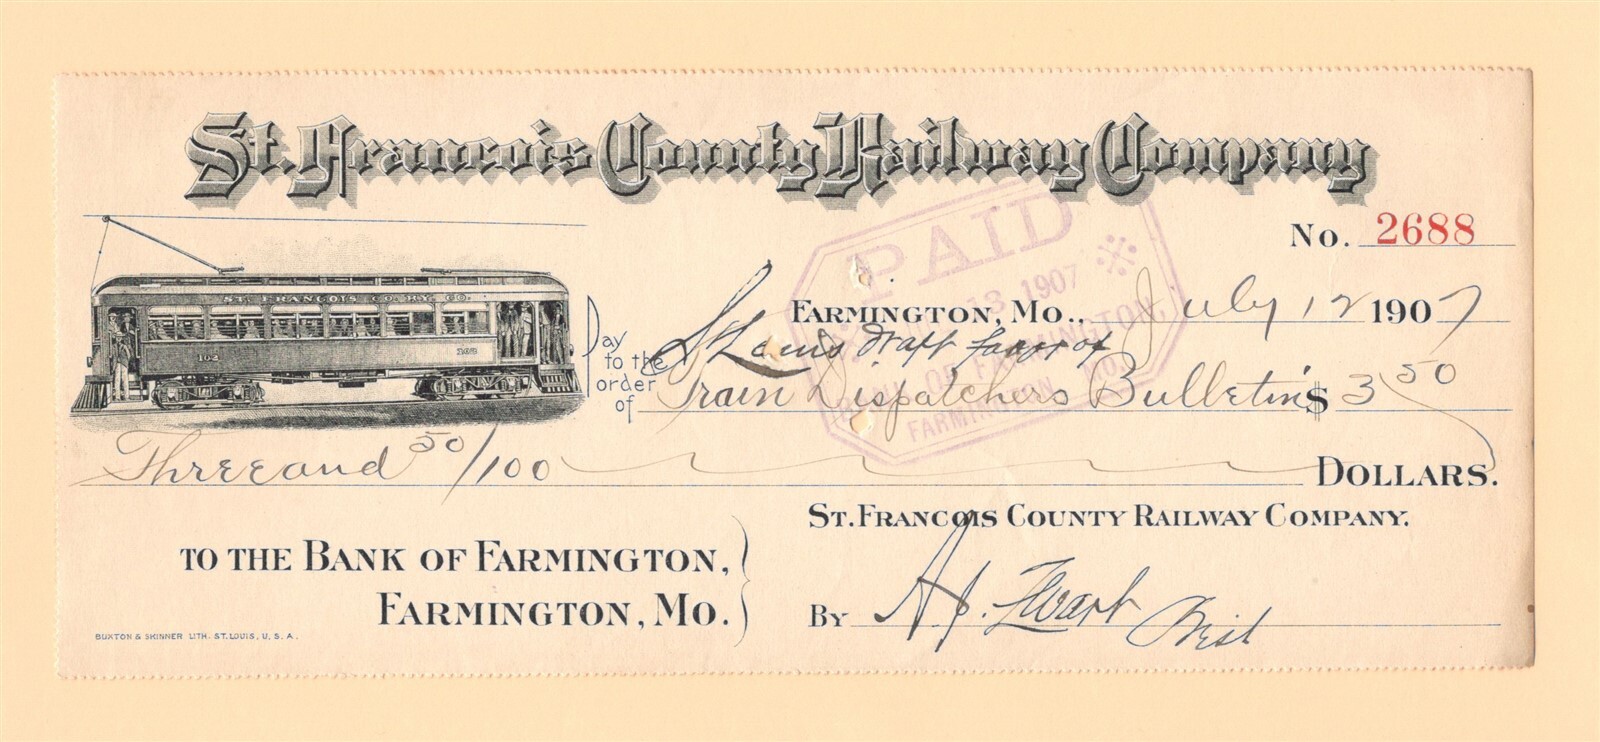 St. Francois County Railway Company
No. 2688
ST. FRANCOIS CO. RY. CO.
102
PAID
13 1907
BANK OF FARMINGTON,
FARMINGTON MO.
FARMINGTON, MO., July 12 1907
Pay to the order of
St Louis draft favor of
Train Dispatchers Bulletin $ 3 50
Three and 50/100 DOLLARS.
ST. FRANCOIS COUNTY RAILWAY COMPANY.
TO THE BANK OF FARMINGTON,
FARMINGTON, MO.
By
BUXTON & SKINNER LITH. ST. LOUIS, U. S. A.